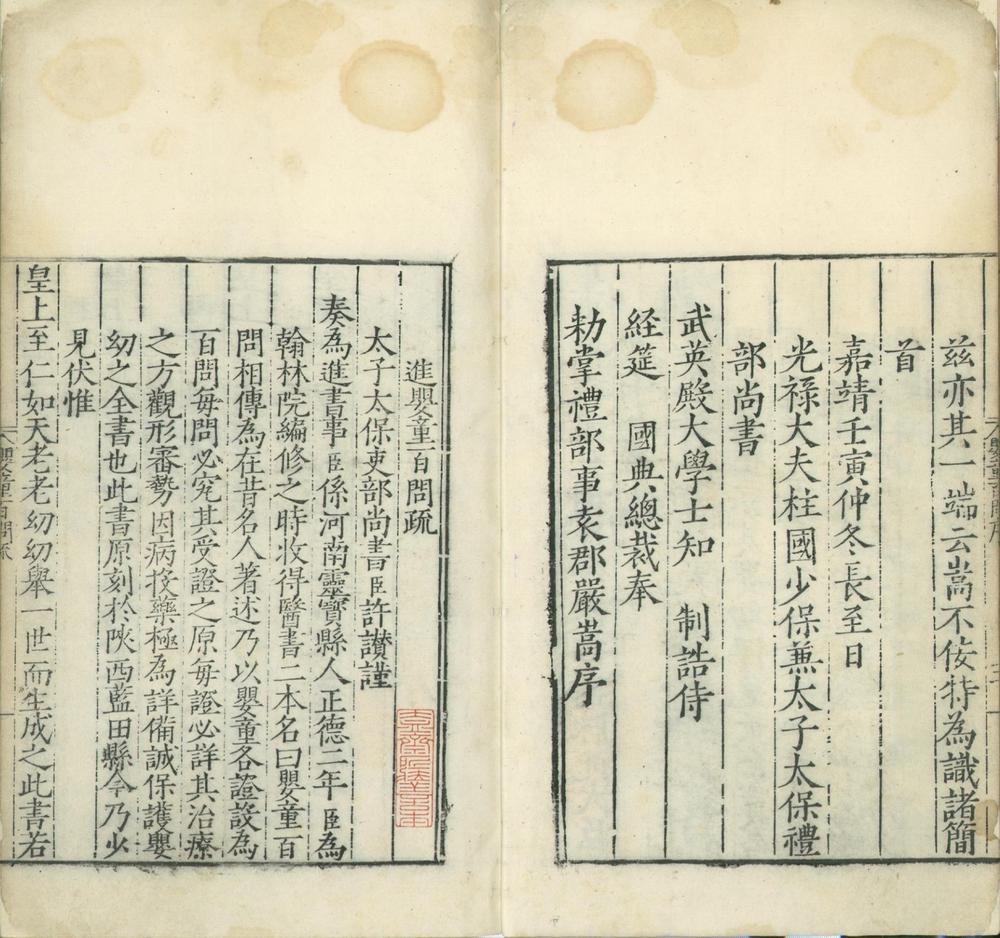 茲亦其一端云嵩不佞特為識諸簡
首
嘉靖壬寅仲冬長至日
光祿大夫柱國少保兼太子太保禮
部尚書
武英殿大學士知　制誥侍
經筵　國典總裁奉
勑掌禮部事袁郡嚴嵩序
進嬰童百問疏
太子太保吏部尚書臣許讃謹
奏為進書事臣係河南靈寳縣人正德二年臣為
翰林院編修之時收得醫書二本名曰嬰童百
問相傳為在昔名人著述乃以嬰童各證設為
百問每問必究其受證之原每證必詳其治療
之方觀形審勢因病投藥極為詳備誠保護嬰
幼之全書也此書原刻於陝西藍田縣令乃少
見伏惟
皇上至仁如天老老幼幼舉一世而生成之此書若